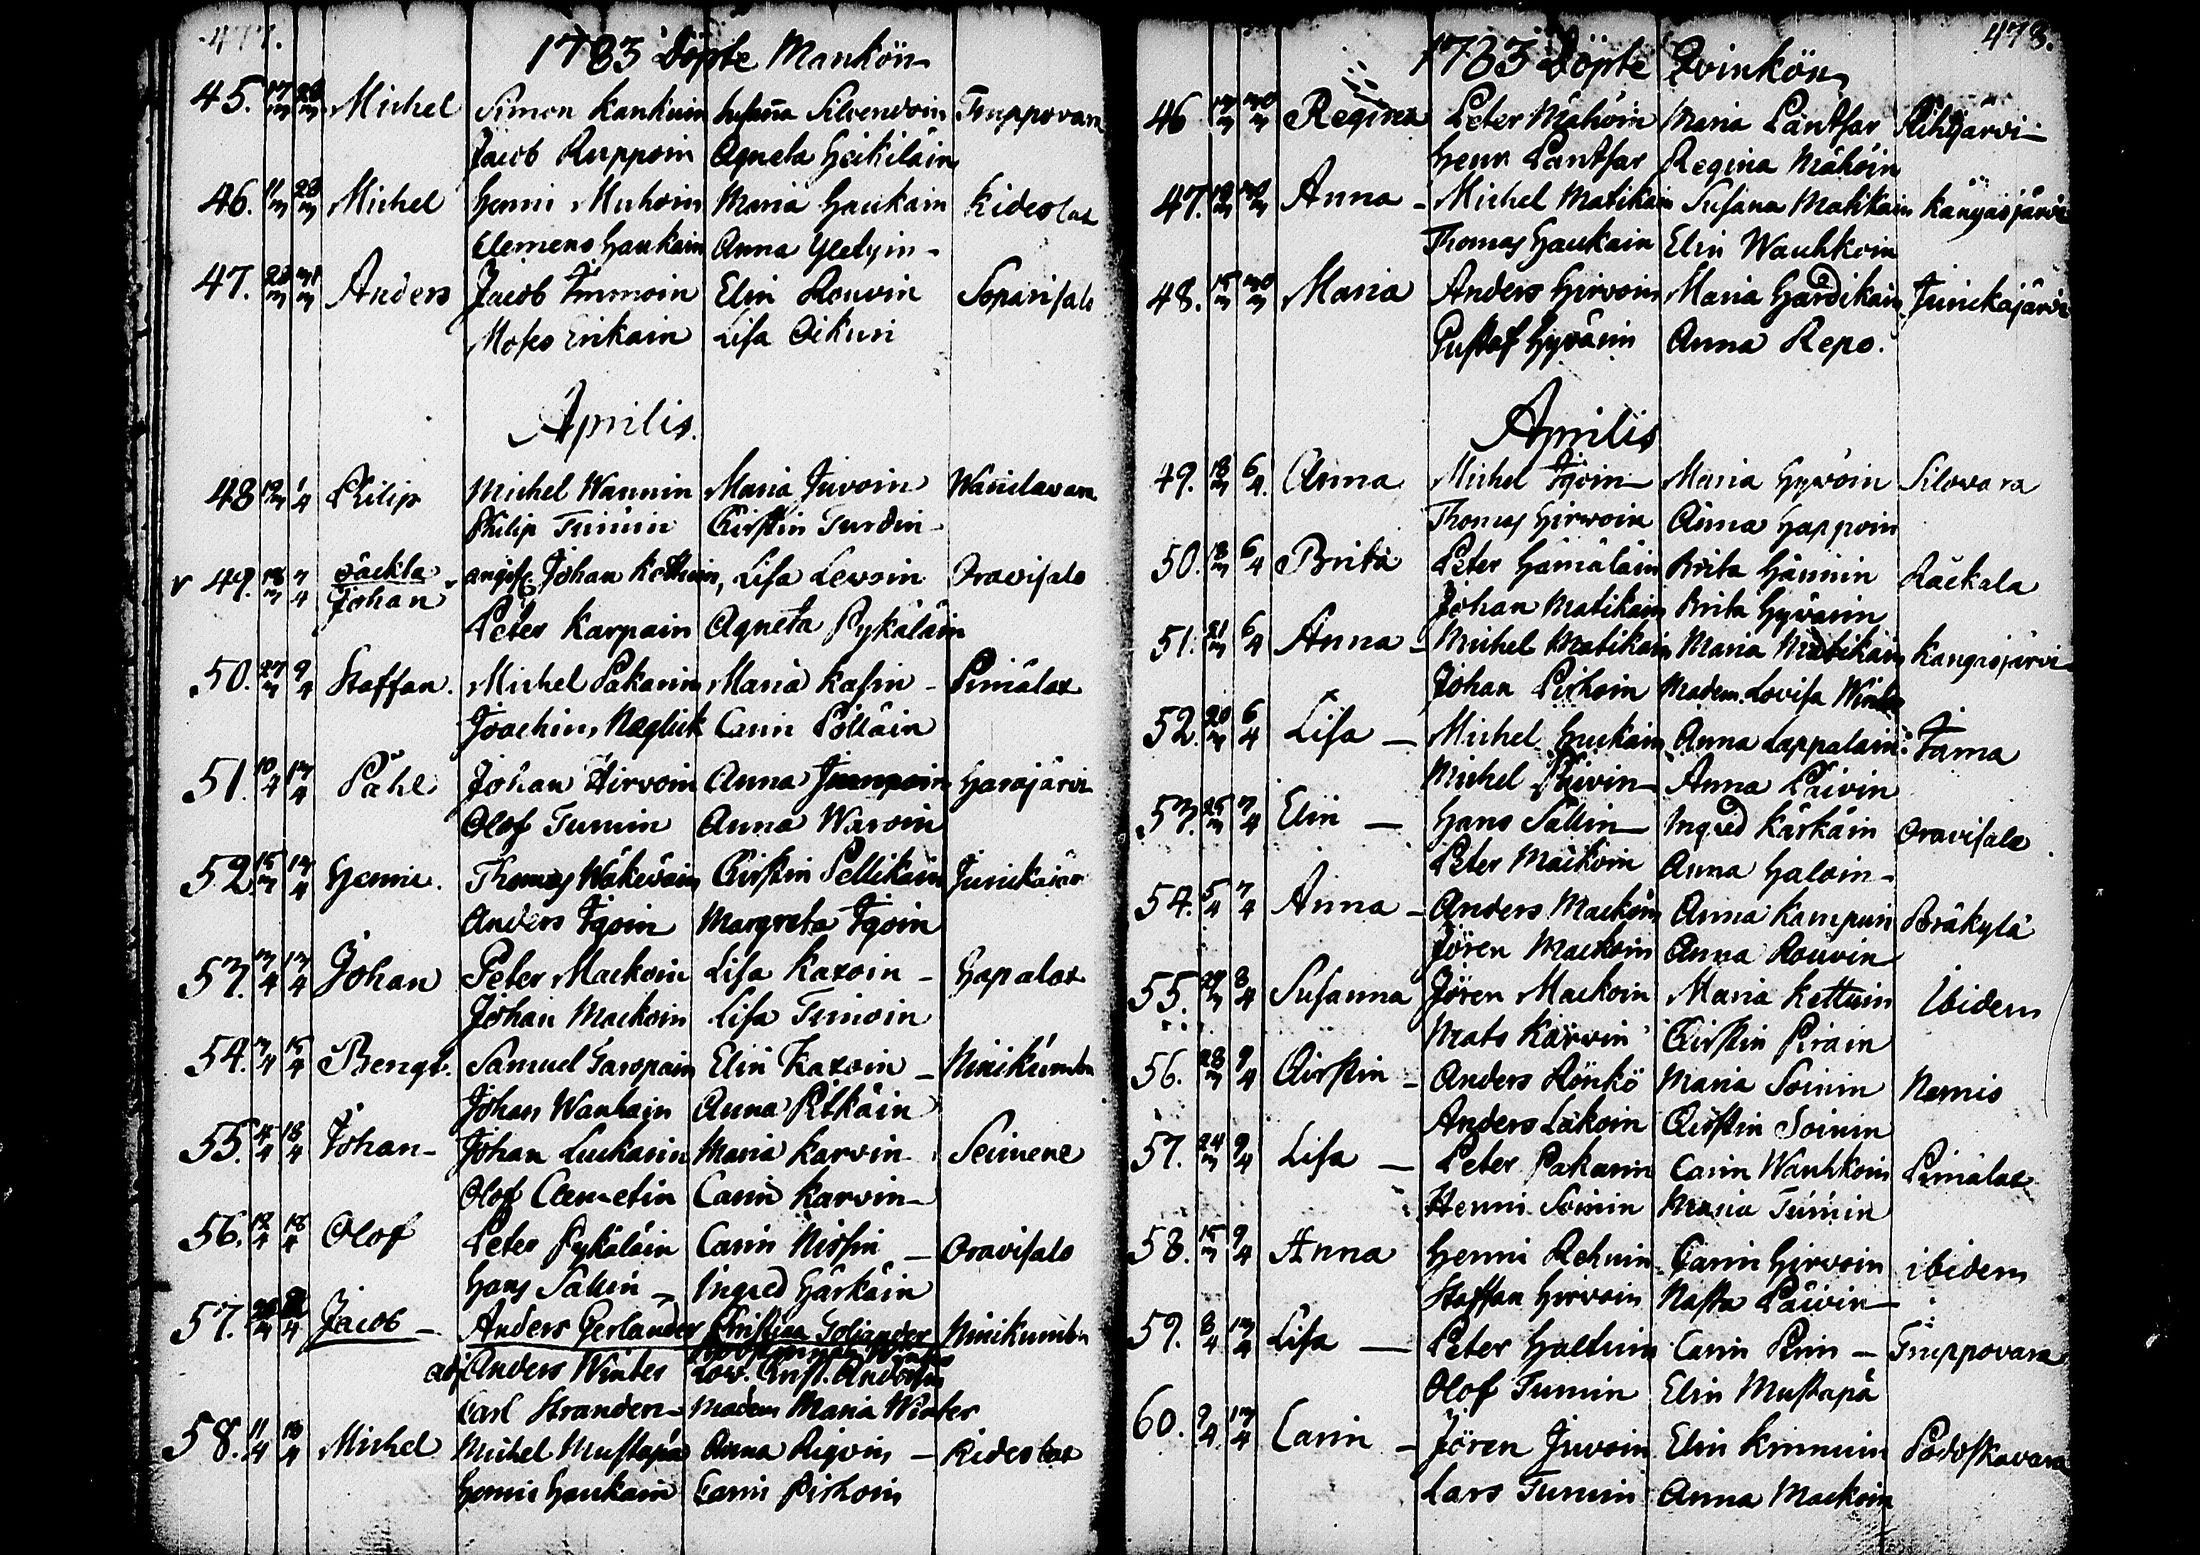 477.
1783 Döpte Mankön
45. 17/3 23/3 Michel Simon Kankuin Susana Silvendoin Truppovara
Jacob Ruppoin Agneta Heikiläin
46. 11/3 23/3 Michel Henric Muhoin Maria Haukain Kideslax
Clemens Haukain Anna
47. 23/3 31/3 Anders Jacob Immoin Elin Rouvin Soparisalo
Moses Erikain Lisa Oikuri
Aprilis.
48 19/3 1/4 Philip Michel Wannin Maria Juvoin
Philip Turuin Kirstin Turdin
49. 18/3 7/4 Johan angift Johan Kettuin, Lisa Levoin Oravisalo
Peter Karpain Agneta Pykäläin
50. 27/3 9/4 Staffan. Michel Pakarin Maria Kasin - Pimälax
Joachim Neglick Carin Pöllöin
51. 10/4 13/4 Påhl Johan Hirvoin Anna Harajärvi
Olof Turuin Anna Waroin
52 15/3 14/4 Henric. Thomas Wäkeväin Kirstin Pellikain Junikajär
Anders Igoin Margreta Igoin
53. 13/4 13/4 Johan Peter Mackoin Lisa Kaxoin - Hapalax
Johan Mackoin Lisa Timoin
54. 3/4 15/4 Bengt. Samuel Taropain Elin Kaxoin - Niinikumbu
Johan Wanhain Anna Pitkäin
55. 15/4 18/4 Johan - Johan Luckarin Maria Karvin - Seimene
Olof Clemetin Carin Karvin -
56. 12/4 18/4 Olof Peter Pykäläin Carin Nissin - Oravisalo
Hans Sallin - Ingred Härkäin
57. Jacob - Anders Gerlander Christina Toliander Niinikumbu
Anders Winter Lov. Christ.
Carl Strander - Madem Maria Winter
58. 11/4 18/4 Michel Michel Mustapä Anna Rigoin - Kideslax
Henric Haukain Carin Pirhoin
478.
1783 Döpte Qvinkön
46 17/3 30/3 Regina Peter Mähöin Maria Läntfar Rihijärvi -
Henr Läntfar Regina Mähöin
47. 19/3 30/3 Anna - Michel Matikain Susana Matikain Kangasjärvi
Thomas Haukain Elin Wauhkoin
48. 15/3 30/3 Maria Anders Hirvoin Maria Hardikain Junickajärvi
Gustaf Hyvärin Anna Repo.
Aprilis
49. 18/3 6/4. Anna Michel Igoin - Maria Hyvöin Silovara
Thomas Hirvoin Anna Happoin
50. 18/3 6/4 Brita Peter Hämäläin Brita Hännin Räckala
Johan Matikain Brita Hyvärin
51. 21/3 6/4 Anna - Michel Matikain Maria Matikain Kangasjärvi
Johan Pirhoin Madem. Lovisa Winter
52. 20/3 6/4 Lisa - Michel Huckain Anna Lappalain: Jama
Michel Päivin - Anna Päivin
53. 25/3 7/4 Elin - Hans Sallin - Ingred Kärkäin Oravisalo
Peter Mackoin Anna Haloin -
54. 5/4 7/4 Anna - Anders Mackoin Anna Kampuin Poräkylä
Jören Mackoin Anna Rouvin
55. 29/3 8/4 Susanna Jören Mackoin Maria Kettuin Ibidem
Mats Karvin Kirstin Pirain
56. 28/3 9/4 Kirstin - Anders Rönkö Maria Soinin Nemis
Anders Läkoin Kirstin Soinin
57. 24/3 9/4 Lisa - Peter Pakarin Carin Wauhkoin Pimälax
Henric Soinin Maria Turuin
58. 15/3 9/4 Anna Henric Rehuin Carin Hirvoin ibidem
Staffan Hirvoin Nasta Päivin -
59. 8/4 13/4 Lisa - Peter Haltuin Carin Pirin - Truppovara
Olof Turuin Elin Mustapä
60. 9/4. 13/4 Carin - Jören Juvoin Elin Kinnuin Pådoskavara
Lars Turuin Anna Mackoin